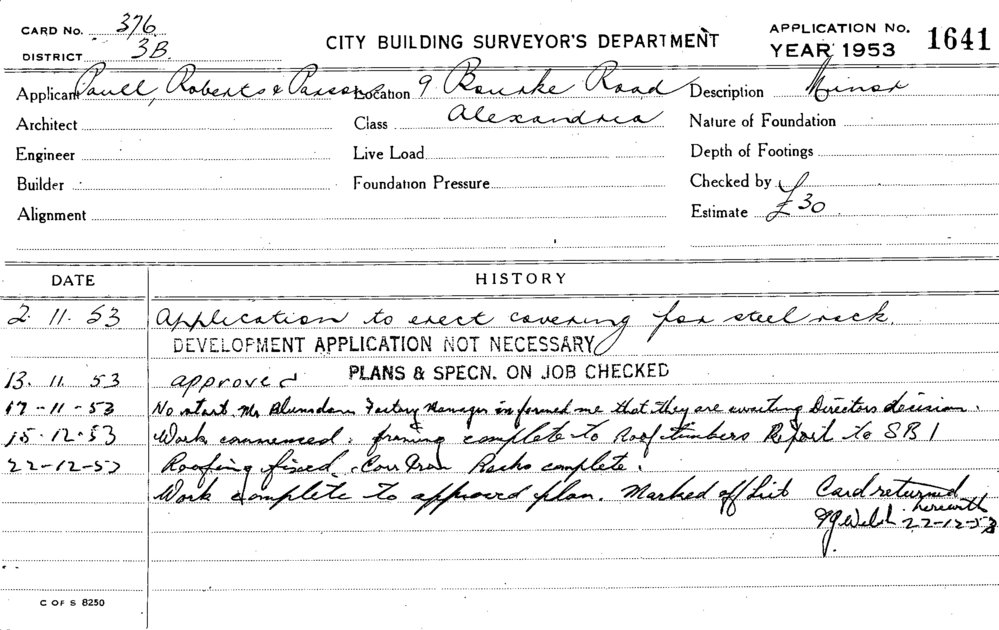 CARD No. 376
DISTRICT 3B.
CITY BUILDING SURVEYOR'S DEPARTMENT
APPLICATION No.
YEAR 1953 1641
Applicant Paull, Roberts & Parsons Location 9 Bourke Road Description Minor
Architect Class Alexandria Nature of Foundation
Engineer Live Load Depth of Footings
Builder Foundation Pressure Checked by
Alignment Estimate £30
DATE HISTORY
2. 11. 53 Application to erect covering for steel rack.
DEVELOPMENT APPLICATION NOT NECESSARY
13. 11. 53 approved PLANS & SPECN. ON JOB CHECKED
17-11-53 No start. Mr Factory Manager informed me that they are awaiting Directors decision.
15-12-53 Work commenced. framing complete to roof timbers Report to SB 1
22-12-53 Roofing fixed, Corr Iron Racks complete.
Work complete to approved plan. Marked off List Card returned
herewith
22-12-53
C OF S 8250